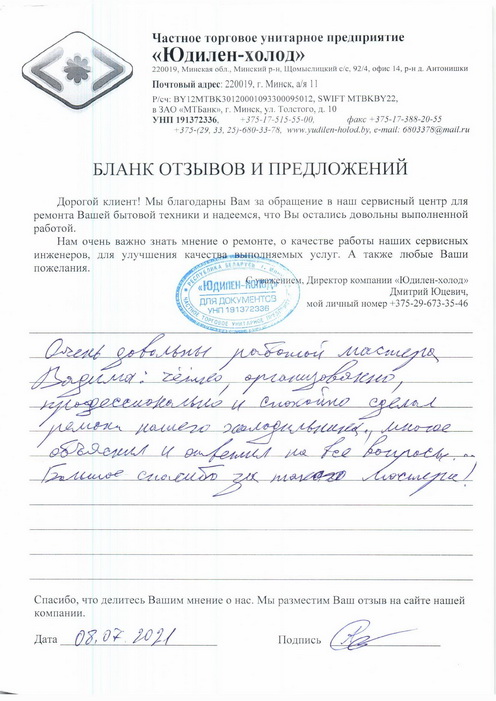 Частное торговое унитарное предприятие
«Юдилен-холод»
220019, Минская обл., Минский р-н, Щомыслицкий с/с, 92/4, офис 14, р-н д. Антонишки
Почтовый адрес: 220019, г. Минск, а/я 11
Р/сч: BY12MTBK30120001093300095012, SWIFT MTBKBY22,
в ЗАО «МТБанк», г. Минск, ул. Толстого, д. 10
УНП 191372336, +375-17-515-55-00, факс +375-17-388-20-55
+375-(29, 33, 25)-680-33-78, www.yudilen-holod.by, e-mail: 6803378@mail.ru
БЛАНК ОТЗЫВОВ И ПРЕДЛОЖЕНИЙ
Дорогой клиент! Мы благодарны Вам за обращение в наш сервисный центр для
ремонта Вашей бытовой техники и надеемся, что Вы остались довольны выполненной
работой.
Нам очень важно знать мнение о ремонте, о качестве работы наших сервисных
инженеров, для улучшения качества выполняемых услуг. А также любые Ваши
пожелания.
С уважением, Директор компании «Юдилен-холод»
Дмитрий Юцевич,
мой личный номер +375-29-673-35-46
РЕСПУБЛИКА БЕЛАРУСЬ
«ЮДИЛЕН-ХОЛОД»
ДЛЯ ДОКУМЕНТОВ
УНП 191372336
ЧАСТНОЕ ТОРГОВОЕ УНИТАРНОЕ ПРЕДПРИЯТИЕ
Очень довольны работой мастера
Вадима: чётко, организованно,
профессионально и спокойно сделал
ремонт нашего холодильника, многое
объяснил и ответил на все вопросы...
Большое спасибо за такого мастера!
Спасибо, что делитесь Вашим мнение о нас. Мы разместим Ваш отзыв на сайте нашей
компании.
Дата 08.07.2021 Подпись